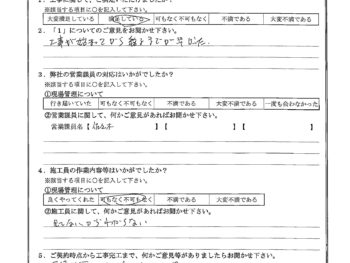 ※該当する項目に○を記入して下さい。
大変満足している 満足している 可もなく不可もなく 不満である 大変不満である
2．「1」についてのご意見をお聞かせ下さい。
工事が始まってから終るまでが早かった。
3．弊社の営業職員の対応はいかがでしたか？
※該当する項目に○を記入して下さい。
①現場管理について
行き届いていた 可もなく不可もなく 不満である 大変不満である 一度も会わなかった
②営業職員に関して、何かご意見があればお聞かせ下さい。
営業職員名【 佐々木 】【 】【 】
4．施工員の作業内容等はいかがでしたか？
※該当する項目に○を記入して下さい。
①現場管理について
良くやってくれた 可もなく不可もなく 不満である 大変不満である
②施工員に関して、何かご意見があればお聞かせ下さい。
見てないから分からない
5．ご契約時点から工事完工まで、何かご意見等がありましたらお聞かせ下さい。